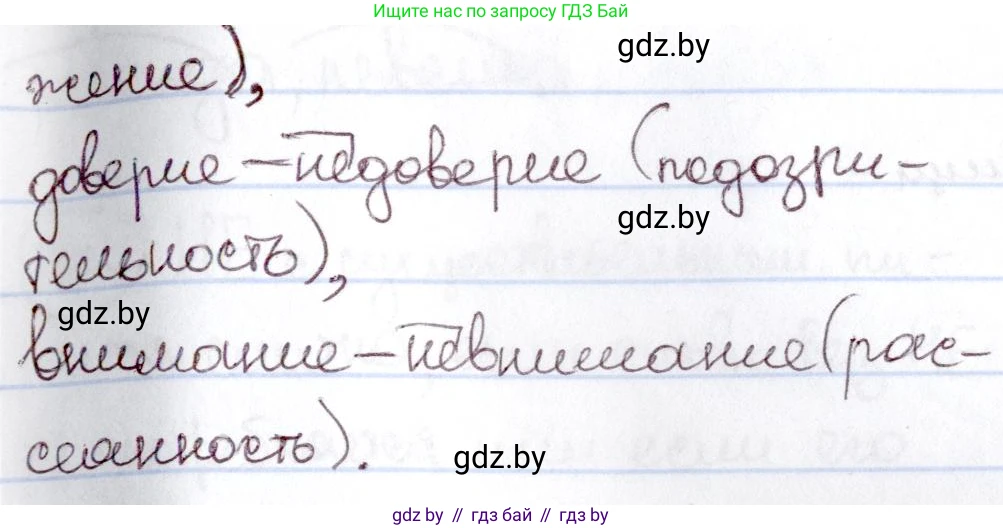 Ищите нас по запросу ГДЗ Бай
жение),
gdz.by
доверие – недоверие (подозри-
gdz.by
тельность),
gdz.by
внимание – невнимание (рас-
сеанность).
gdz.by
gdz by // гдз бай // гдз by